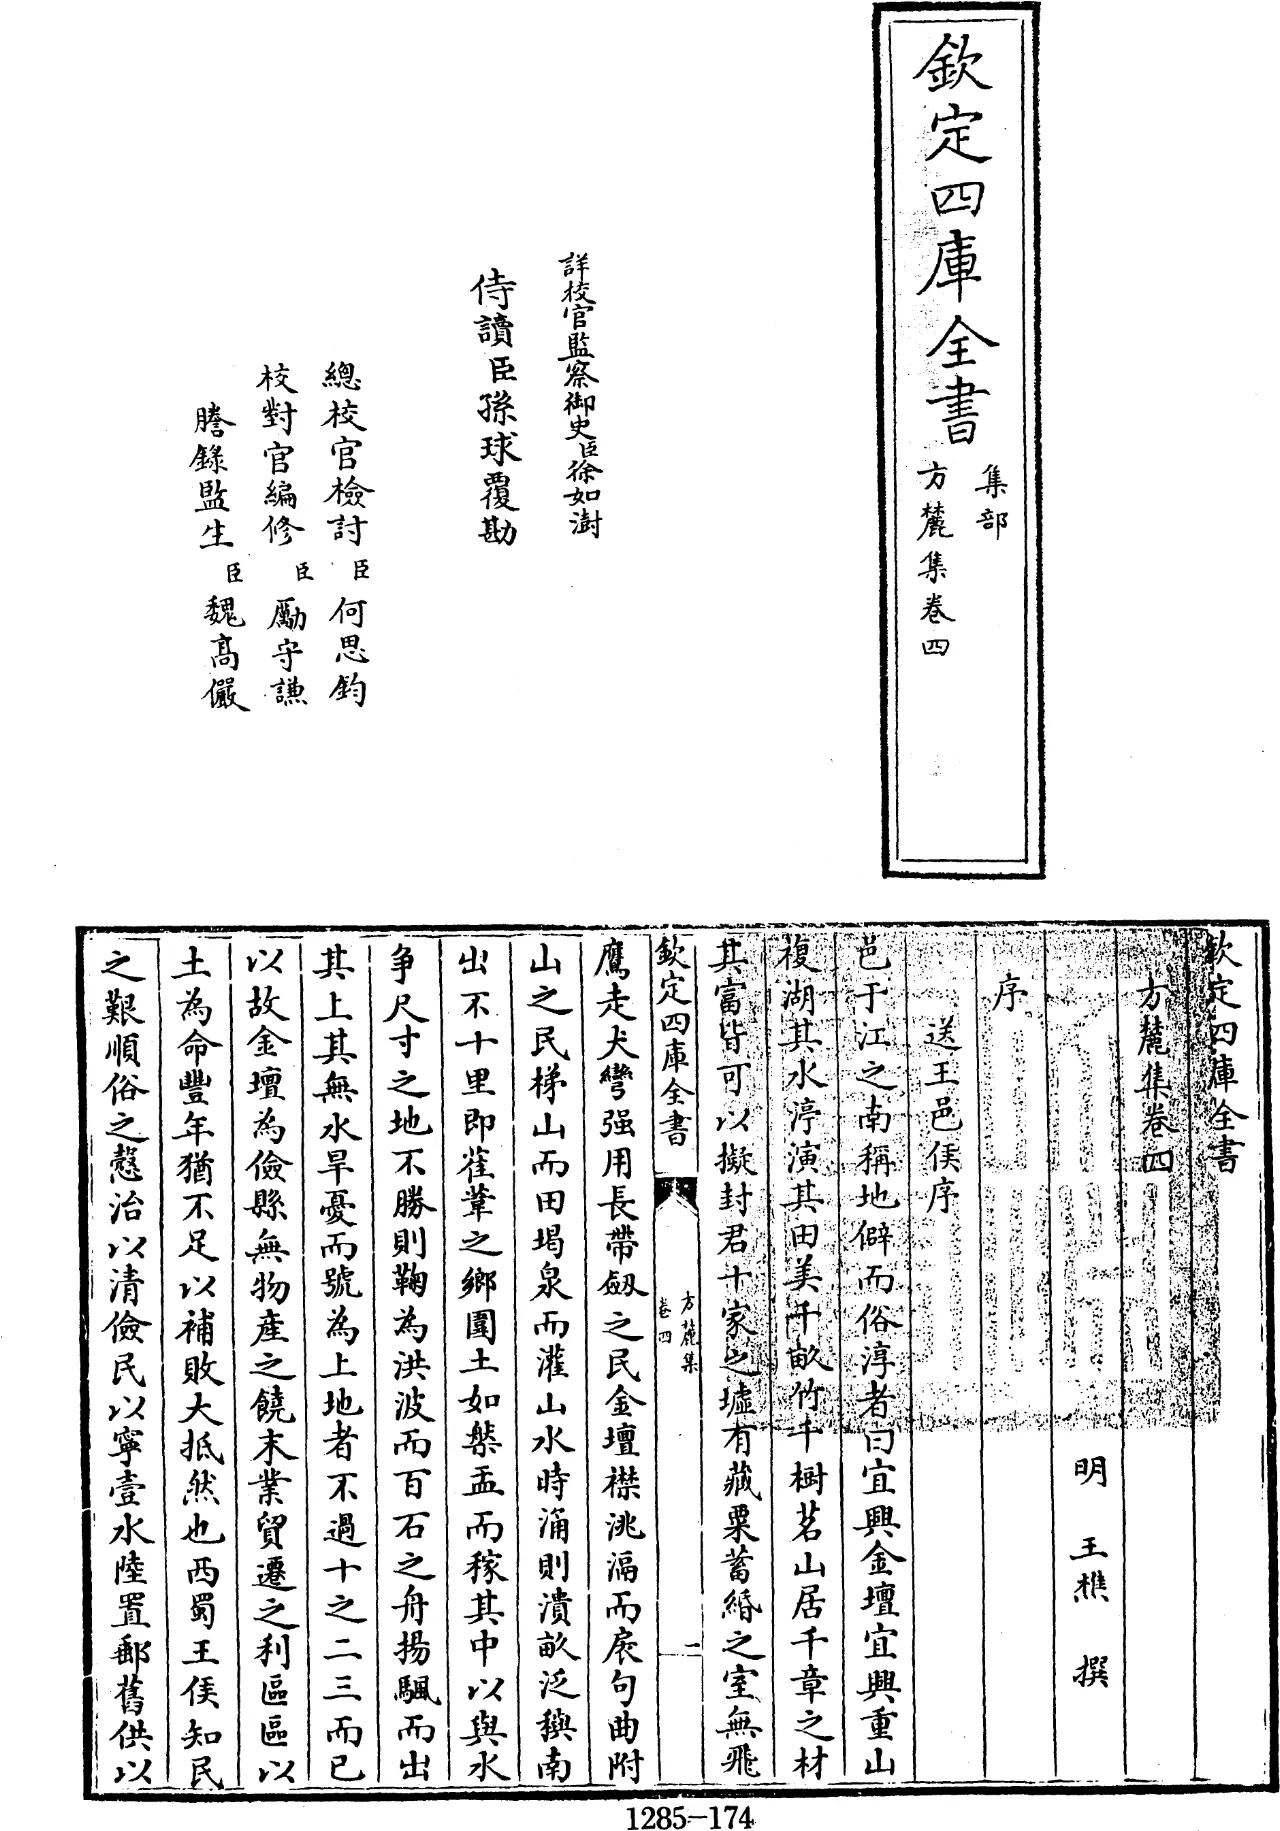 欽定四庫全書
集部
方麓集卷四
詳校官監察御史臣徐如澍
侍讀臣孫球覆勘
總校官檢討臣何思鈞
校對官編修臣勵守謙
謄錄監生臣魏高儼
欽定四庫全書
方麓集卷四
明 王樵 撰
序
送王邑侯序
邑于江之南稱地僻而俗淳者曰宜興金壇宜興重山
複湖其水渟演其田美千畝竹千樹茗山居千章之材
其富皆可以擬封君十家之墟有藏粟蓄緡之室無飛
欽定四庫全書
方麓集
卷四
一
鷹走犬彎强用長帶劔之民金壇襟洮滆而扆句曲附
山之民梯山而田堨泉而灌山水時涌則潰畝泛穟南
出不十里即萑葦之鄉圍土如槃盂而稼其中以與水
争尺寸之地不勝則鞠為洪波而百石之舟揚颿而出
其上其無水旱憂而號為上地者不過十之二三而已
以故金壇為儉縣無物產之饒末業貿遷之利區區以
土為命豐年猶不足以補敗大抵然也西蜀王侯知民
之艱順俗之愨治以清儉民以寧壹水陸置郵舊供以
1285-174